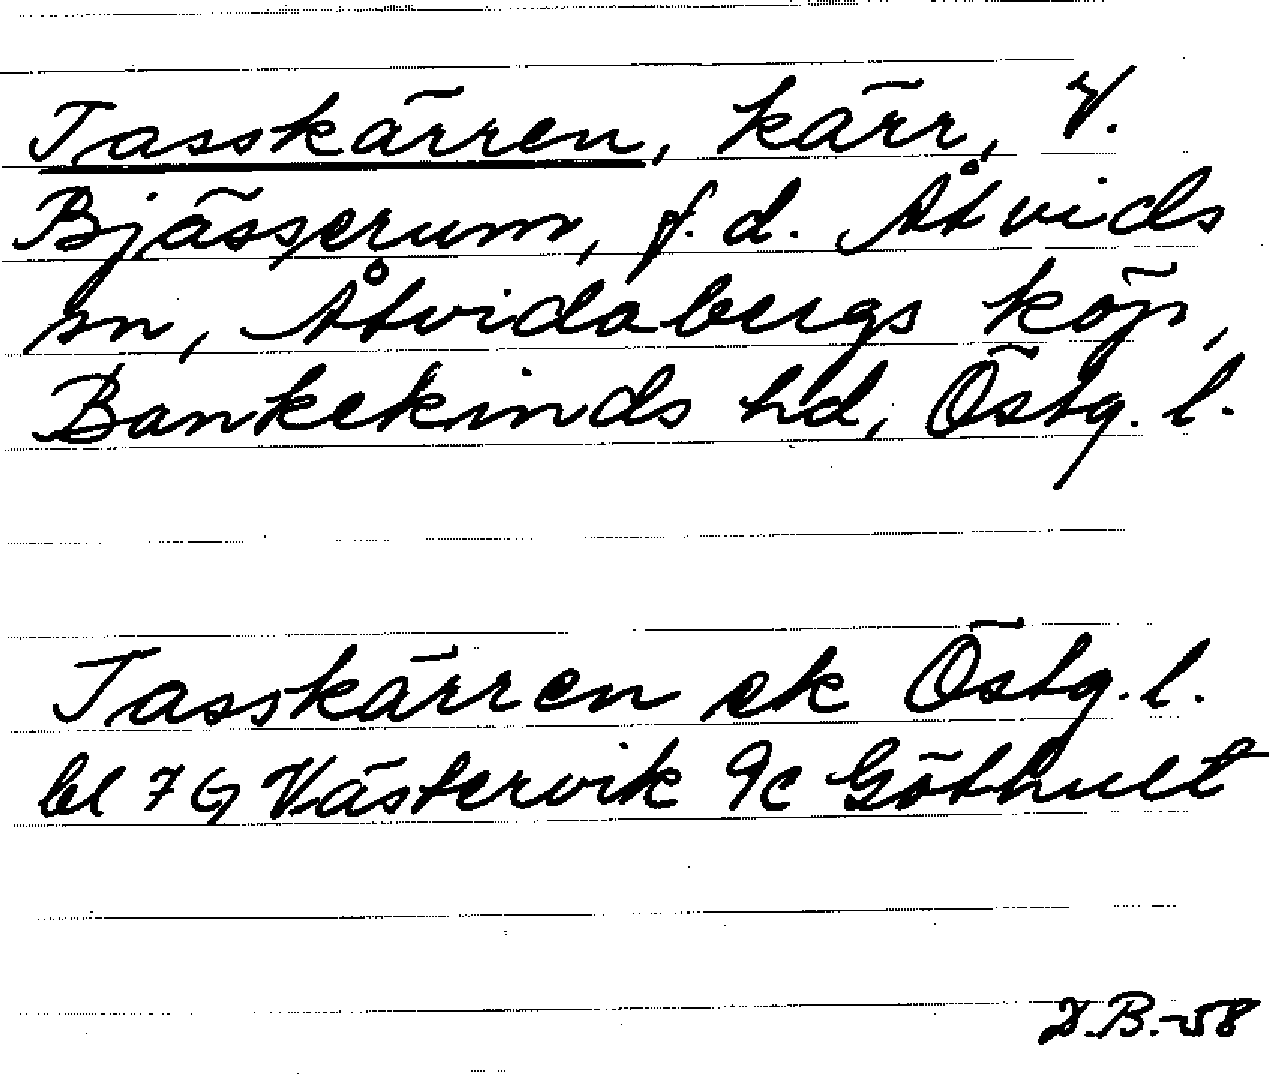 Tasskärren, kärr, V.
Bjässerum, f.d. Åtvids
sn, Åtvidabergs köp,
Bankekinds hd, Östg. l.
Tasskärren ek Östg. l.
bl 7 G Västervik 9c Göthult
D.B.-58